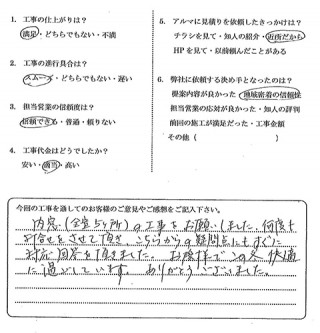 1. 工事の仕上がりは？
満足・どちらでもない・不満
2. 工事の進行具合は？
スムーズ・どちらでもない・遅い
3. 担当営業の信頼度は？
信頼できる・普通・頼りない
4. 工事代金はどうでしたか？
安い・適当・高い
5. アルマに見積りを依頼したきっかけは？
チラシを見て・知人の紹介・近所だから
HPを見て・以前頼んだことがある
6. 弊社に依頼する決め手となったのは？
提案内容が良かった・地域密着の信頼性
担当営業の応対が良かった・知人の評判
前回の施工が満足だった・工事金額
その他（　　　）
今回の工事を通してのお客様のご意見やご感想をご記入下さい。
内窓（全室5ヶ所）の工事をお願いしました。何度も
お打合せをさせて頂き、こちらからの疑問点にもすぐに
対応、回答を頂きました。お陰様でこの冬、快適
に過ごしています。ありがとうございました。